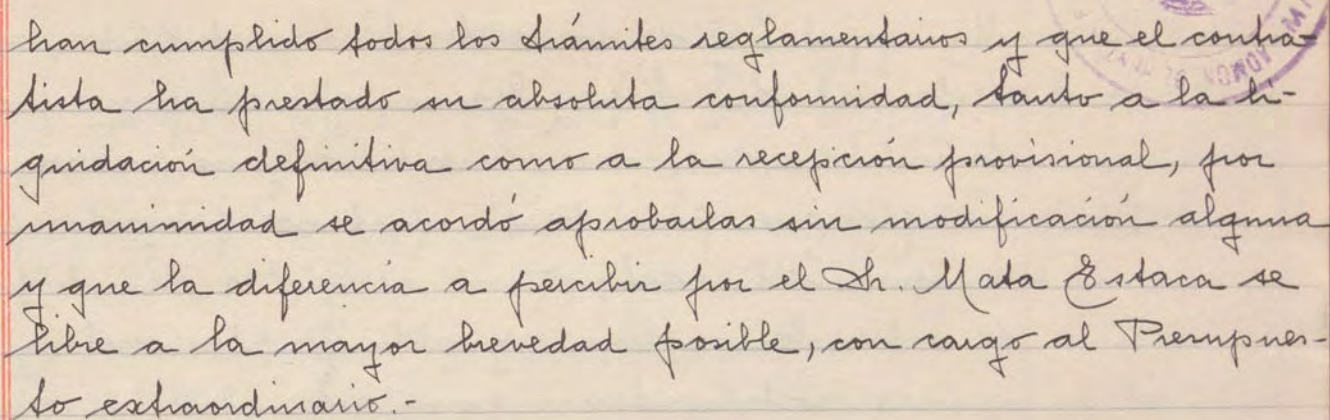 han cumplido todos los trámites reglamentarios y que el contra-
tista ha prestado su absoluta conformidad, tanto a la li-
quidación definitiva como a la recepción provisional, por
unanimidad se acordó aprobarlas sin modificación alguna
y que la diferencia a percibir por el Sr. Mata Estaca se
libre a la mayor brevedad posible, con cargo al Presupues-
to extraordinario.-